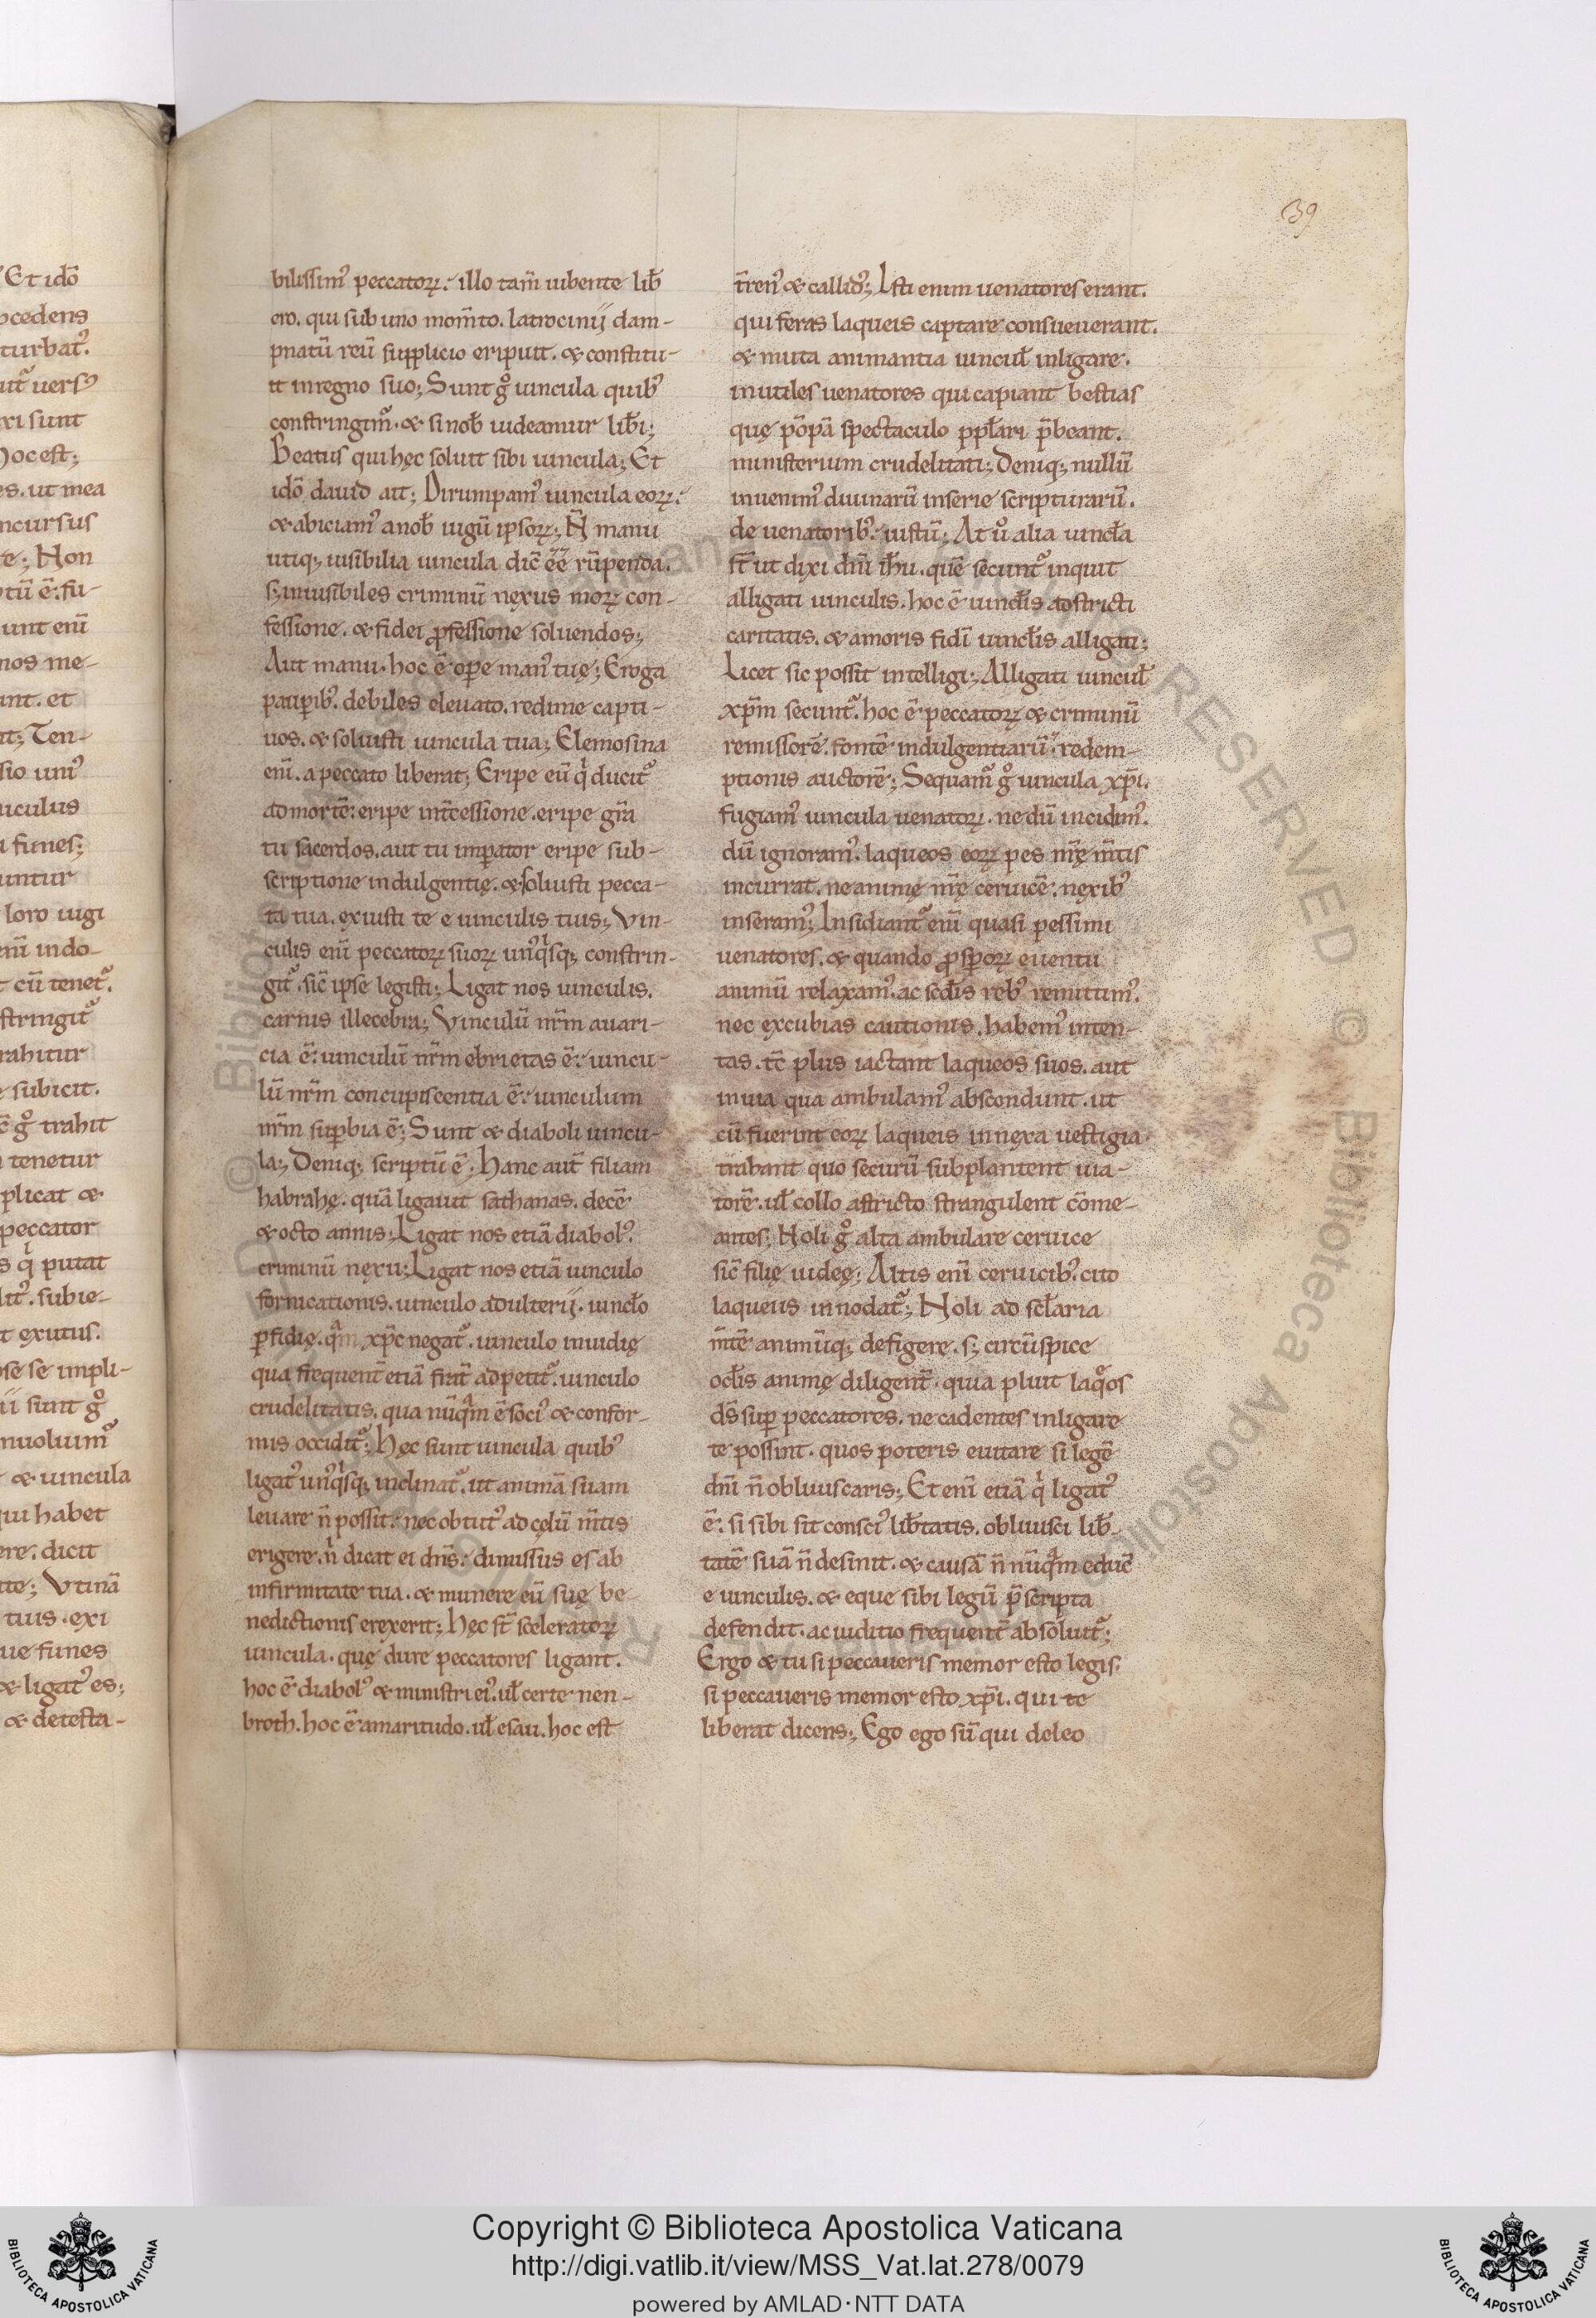 39
Et idō
ocedens
turbat᷒.
uers᷒
xi sunt
hoc est;
es. ut mea
ncursus
te; Non
ptū ē. fu-
unt enī
nos me-
unt. et
it; Ten-
sio uni᷒
uiculus
funes;
untur
loro iugi
enī indo-
cū tenet᷑.
stringit᷑
rahitur
subicit.
g̊ trahit
tenetur
plicat &
peccator
qͥ putat
subie-
exutus.
pse se impli-
sunt g̊
nuoluim᷒
& uincula
qui habet
ere. dicit
te; Vtinā
tuis. exi
ue funes
& ligat᷒ es;
& detesta-
bilissim᷒ peccatoꝝ. illo tam̄ iubente lib̄
ero. qui sub uno mom̄to. latrocinij dam-
pnatū reū supplicio eripuit. & constitu-
it inregno suo; Sunt g̊ uincula quib᷒
constringim᷒. & si nob̄ uideamur lib̄i;
Beatus qui hęc soluit sibi uincula; Et
idō dauid ait; Dirumpam᷒ uincula eoꝝ.
& abiciam᷒ anob̄ iugū ipsoꝝ; N̄ manu
utiq; uisibilia uincula dic̄ ēē rūpenda.
s; inuisibiles criminū nexus moꝝ con-
fessione. & fidei ꝓfessione soluendos;
Aut manu. hoc ē oꝑe man᷒ tuę; Eroga
pauꝑib᷒. debiles eleuato. redime capti-
uos. & soluisti uincula tua; Elemosina
enī. a peccato liberat; Eripe eū qͥ ducit᷑
ad mortē. eripe int̄cessione. eripe gr̄a
tu sacerdos. aut tu imꝑator eripe sub-
scriptione indulgentię. & soluisti pecca-
ta tua. exiusti te e uinculis tuis; Vin-
culis enī peccatoꝝ suoꝝ un᷒qͥsq; constrin-
git᷑. sic̄ ipse legisti; Ligat nos uinculis.
carnis illecebra; Vinculū nr̄m auari-
cia ē. uinculū nr̄m ebrietas ē. uincu-
lū nr̄m concupiscentia ē. uinculum
nr̄m suꝑbia ē; Sunt & diaboli uincu-
la; Deniq; scriptū ē. hanc aut̄ filiam
habrahę. quā ligauit sathanas. decē
& octo annis; Ligat nos etiā diabol᷒.
criminū nexu; Ligat nos etiā uinculo
fornicationis. uinculo adulterij. uincl̄o
ꝑfidię. qͣm xp̄c negat᷑. uinculo inuidię
qua frequent̄ etiā frat̄ adpetit᷑. uinculo
crudelitatis. qua nūqͣm ē soci᷒ & confor-
mis occidit᷑; Hęc sunt uincula quib᷒
ligat᷒ un᷒qͥsq; inclinat᷑. ut animā suam
leuare n̄ possit. nec obtut᷒ ad cęlū m̄tis
erigere. nͥ dicat ei dn̄s. dimissus es ab
infirmitate tua. & munere eū suę be-
nedictionis erexerit; Hęc st̄ sceleratoꝝ
uincula. quę dure peccatores ligant.
hoc ē diabol᷒ & ministri ei᷒. ul̄ certe nen-
broth. hoc ē amaritudo. ul̄ esau. hoc est
t̄ren᷒ & callid᷒; Isti enim uenatores erant.
qui feras laqueis captare consueuerant.
& muta animantia uincul̄ inligare.
inutiles uenatores qui capiant bestias
quę pōpā spectaculo ppl̄ari p̄beant.
ministerium crudelitati; Deniq; nullū
inuenim᷒ diuinarū inserie scripturarū.
de uenatorib᷒. iustū; At uͦ alia uincl̄a
st̄ ut dixi dn̄i ih̄u. quē secunt᷑ inquit
alligati uinculis. hoc ē uincl̄is adstricti
caritatis. & amoris fidī uincl̄is alligati;
Licet sic possit intelligi; Alligati uincul̄
xp̄m secunt᷑. hoc ē peccatoꝝ & criminū
remissorē. fontē indulgentiarū. redem-
ptionis auctorē; Sequam᷑ g̊ uincula xp̄i.
fugiam᷒ uincula uenatoꝝ. ne dū incidim᷒.
dū ignoram᷒. laqueos eoꝝ pes nr̄ę m̄tis
incurrat. ne animę nr̄ę ceruicē. nexib᷒
inseram᷒; Insidiant᷑ enī quasi pessimi
uenatores. & quando ꝓsꝑoꝝ euentu
animū relaxam᷒. ac scl̄is reb᷒ remittim᷒.
nec excubias cautionis. habem᷒ inten-
tas. tc̄ plus iactant laqueos suos. aut
inuia qua ambulam᷒ abscondunt. ut
cū fuerint eoꝝ laqueis innexa uestigia
trahant quo securū subplantent uia-
torē. ul̄ collo astricto strangulent cōme-
antes; Noli g̊ alta ambulare ceruice
sic̄ filię iudeę; Altis enī ceruicib᷒. cito
laqueus innodat᷑; Noli ad scl̄aria
m̄tē animūq; defigere. s; circūspice
ocl̄is animę diligent̄. quia pluit laqͦos
ds̄ suꝑ peccatores. ne cadentes inligare
te possint. quos poteris euitare si legē
dn̄i n̄ obliuiscaris; Et enī etiā qͥ ligat᷒
ē. si sibi sit consci᷒ lib̄tatis. obliuisci lib̄-
tatē suā n̄ desinit. & causā n̄ nūqͣm educ̄
e uinculis. & eque sibi legū p̄scripta
defendit. ac iuditio frequent̄ absoluit᷑;
Ergo & tu si peccaueris memor esto legis.
si peccaueris memor esto xp̄i. qui te
liberat dicens; Ego ego sū qui deleo
Copyright © Biblioteca Apostolica Vaticana
http://digi.vatlib.it/view/MSS_Vat.lat.278/0079
powered by AMLAD·NTT DATA
BIBLIOTECA APOSTOLICA VATICANA
BIBLIOTECA APOSTOLICA VATICANA